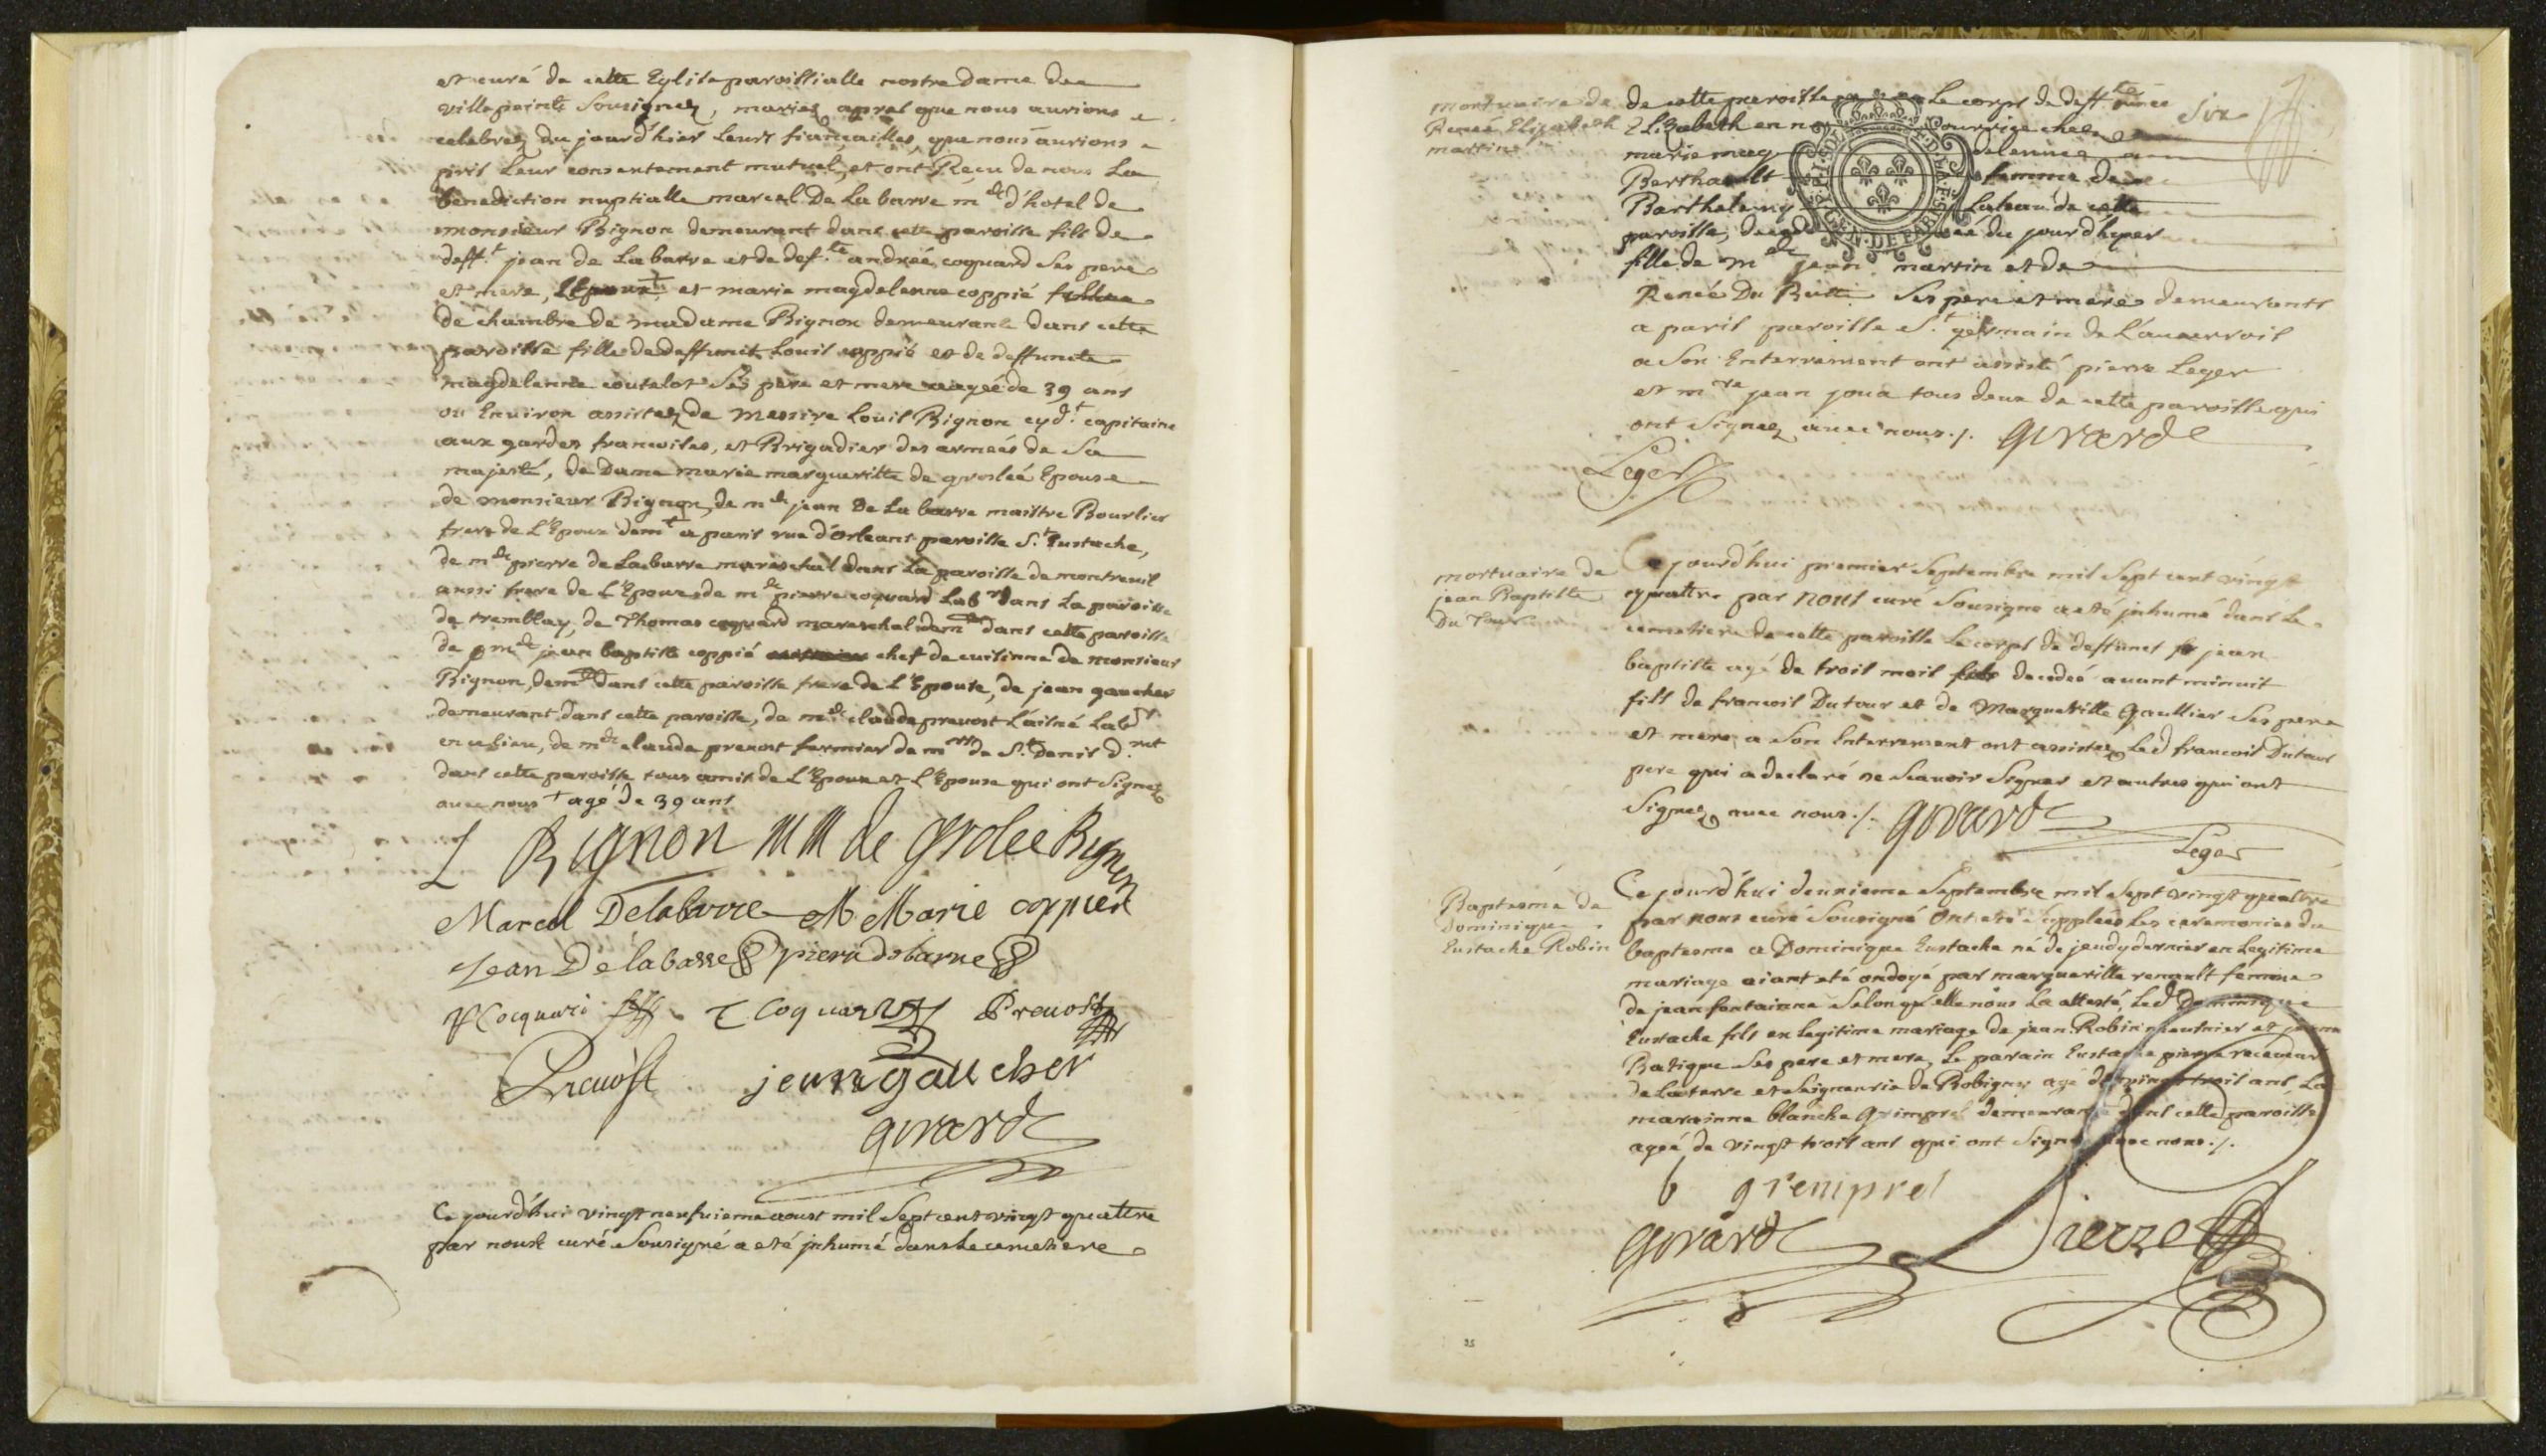 et curé de cette Eglise paroissialle nostre Dame de
villepeinte Sousignez, mariez apres que nous aurions
celebrez du jourd'hier leurs fiancailles, que nous aurions
pris leur consentement mutuel, et ont Reçu de nous La
benediction nuptialle marcel De La barre md d'hotel de
monsieur Bignon demeurant dans cette paroisse fils de
defft jean de La barre et de defte andreé coquard Ses pere
et mere, et marie magdelenne coppié
de chambre de madame Bignon demeurante dans cette
paroisse fille de deffunct Louis coppié et de deffuncte
magdelenne coutelot Ses pere et mere ageé de 39 ans
ou Environ assistez de Messire Louis Bignon cydt capitaine
aux gardes francoises, et Brigadier des armeés de Sa
majesté, de Dame marie margueritte de groleé Epouse
de monsieur Bignon, de mde jean De La barre maistre Bourlier
frere de L'Epoux demt a paris rue d'orleans paroisse St Eustache,
de mde pierre de La barre mareschal dans La paroisse de montreuil
aussi frere de L'Epoux de mde pierre coquard Labr dans La paroisse
de tremblay, de Thomas coquard mareschal demt dans cette paroisse
de mde jean baptiste coppié chef de cuisinne de monsieur
Bignon, demt dans cette paroisse frere de L'Epouse, de jean gaucher
demeurant dans cette paroisse, de mde claude prevost L'aisné Labr
en ce lieu, de mde claude prevost fermier de mrs de St Denis d.nt
dans cette paroisse tous amis de L'Epoux et L'Epouse qui ont Signez
avec nous + agé de 39 ans
L Bignon M M de Grolee Bignon
Marcel Delabarre M Marie coppier
Jean Delabarre piere debarre
P Cocquard T Coquard Prevost
Prevost jean gaucher
Girard
Ce jourd'hui vingt neufuieme aoust mil Sept cent vingt quattre
par nous curé Sousigné a eté jnhumé dans Le cemetiere
mortuaire de
Reneé Elizabeth
martin
Six
de cette paroisse Le corps de deffte Reneé
Elizabeth en nourrice chez
marie magdelenne
Berthault femme de
Barthelemy de cette
paroisse, decedeé du jourd'hyer
fille de mde jean martin et de
Reneé Du Ses pere et mere demeurants
a paris paroisse St germain de L'auxerrois
a Son Enterrement ont assisté pierre Leger
et mre jean joua tous deux de cette paroisse qui
ont Signez avec nous ./. Girard
Leger
mortuaire de
jean Baptiste
Du Tour
Ce jourd'hui premier Septembre mil Sept cent vingt
quattre par nous curé Sousigné a eté jnhumé dans Le
cemetiere de cette paroisse Le corps de deffunct jean
baptiste agé de trois mois decedeé avant minuit
fils de francois Dutour et de Margueritte Gaultier Ses pere
et mere, a Son Enterrement ont assistez Led francois Dutour
pere qui a declaré ne Scavoir Signer et autres qui ont
Signez avec nous ./. Girard
Leger
Baptesme de
Dominique
Eustache Robin
Ce jourd'hui deuxieme Septembre mil Sept vingt quattre
par nous curé Sousigné ont eté Suppleés Les ceremonies du
baptesme a Dominique Eustache né de jeudy dernier en Legitime
mariage aiant eté ondoyé par margueritte renault femme
de jean fontainne Selon qu'elle nous La attesté, Led Dominique
Eustache fils en Legitime mariage de jean Robin meusnier et jeanne
Batique Ses pere et mere, Le parain Eustache pierre receveur
de La terre et Seigneurie de Bobigny agé de vingt trois ans, La
marainne blanche Grimprel demeurante dans cette paroisse
ageé de vingt trois ans qui ont Signé avec nous ./.
b gremprel
Girard Pierre
35